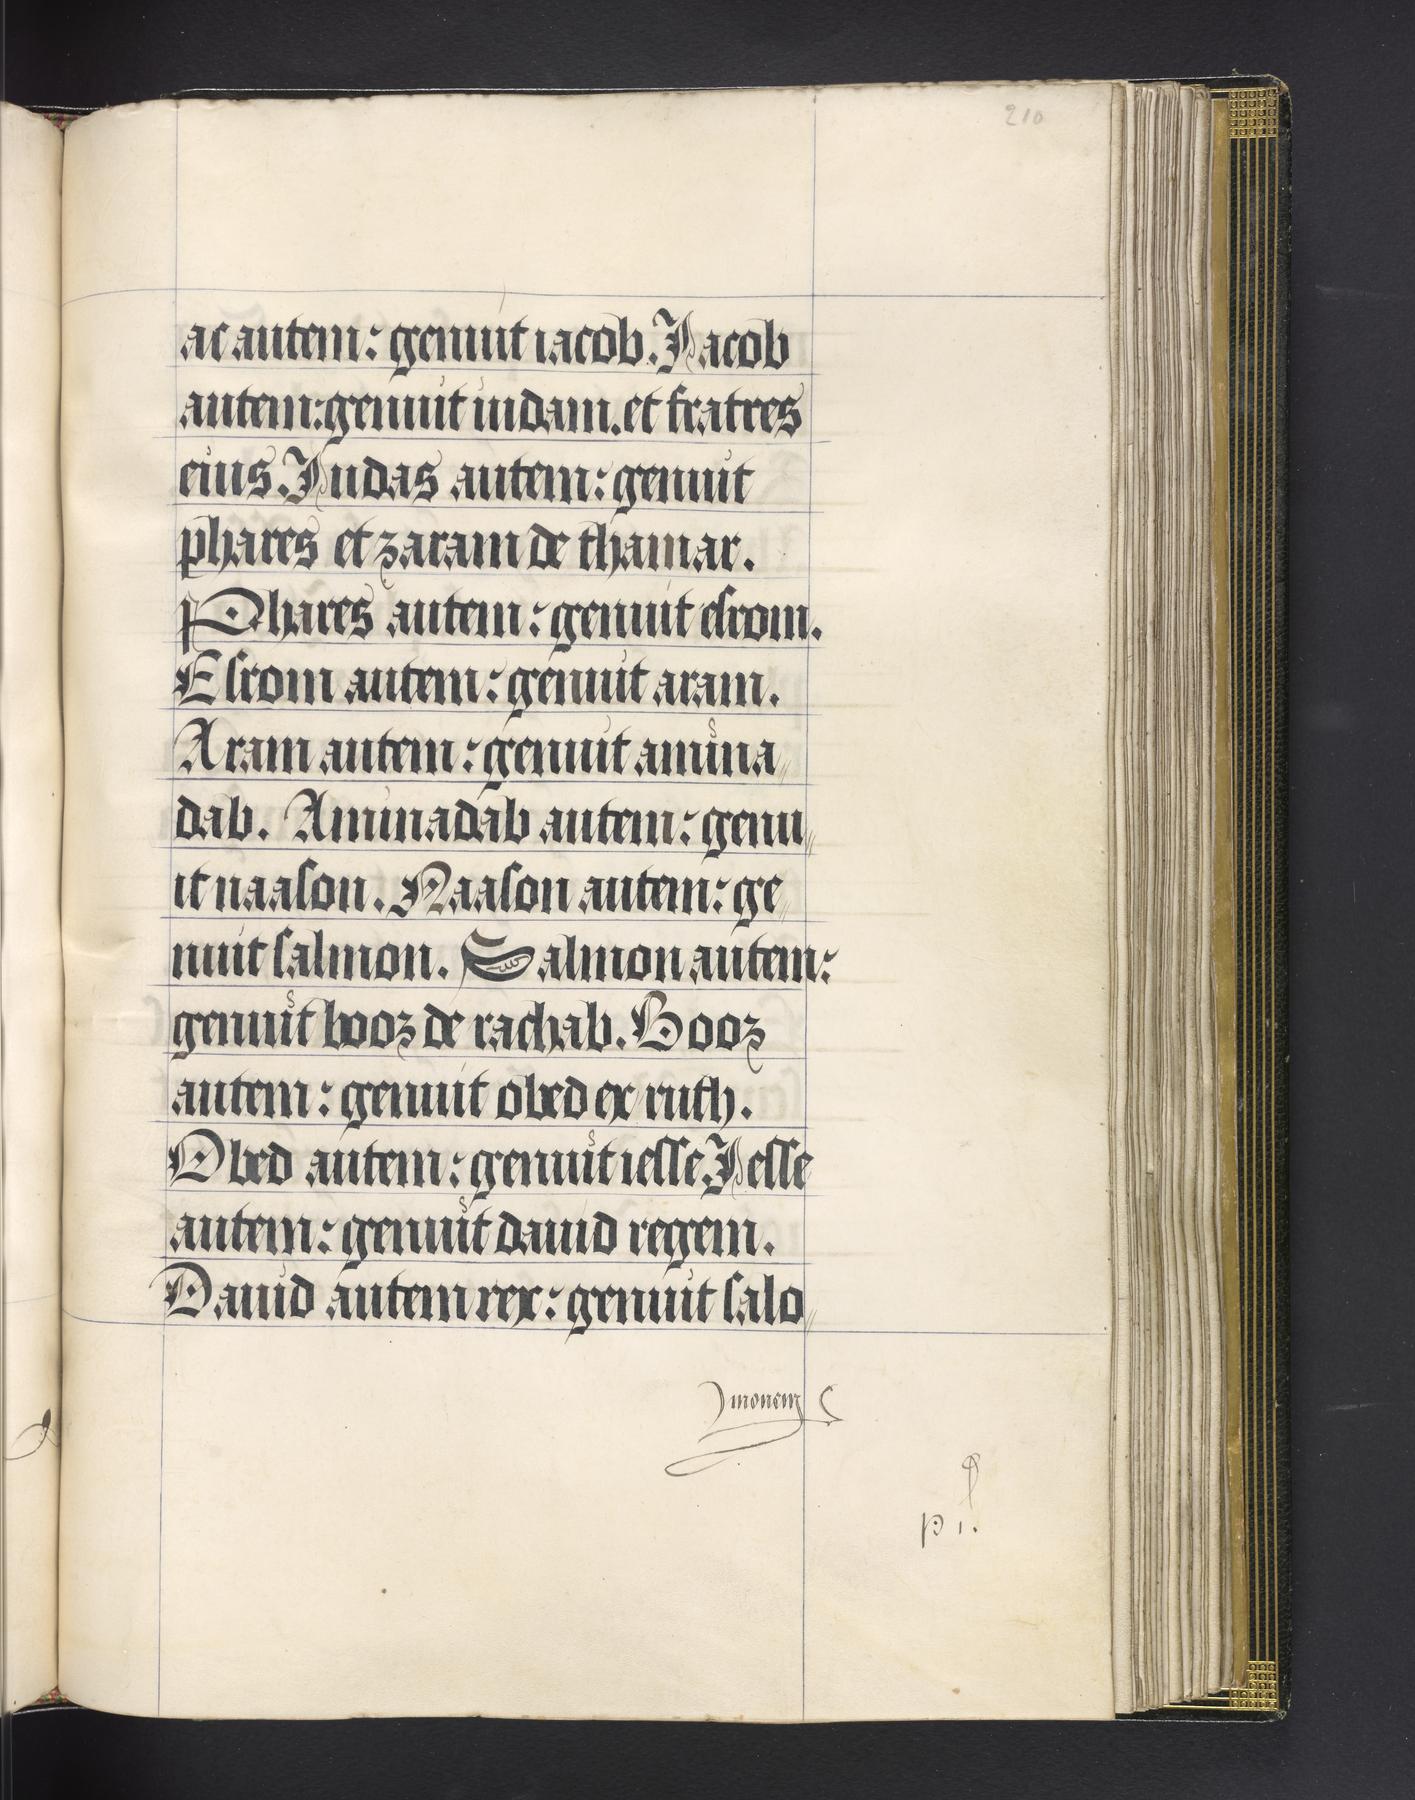 210
ac autem: genuit iacob. Jacob
autem: genuit iudam. et fratres
eius. Judas autem: genuit
phares et zaram de thamar.
Phares autem: genuit esrom.
Esrom autem: genuit aram.
Aram autem: genuit amina
dab. Aminadab autem: genu
it naason. Naason autem: ge
nuit salmon. Salmon autem:
genuit booz de rachab. Booz
autem: genuit obed ex ruth.
Obed autem: genuit iesse. Jesse
autem: genuit dauid regem.
Dauid autem rex: genuit salo
monem
p i.